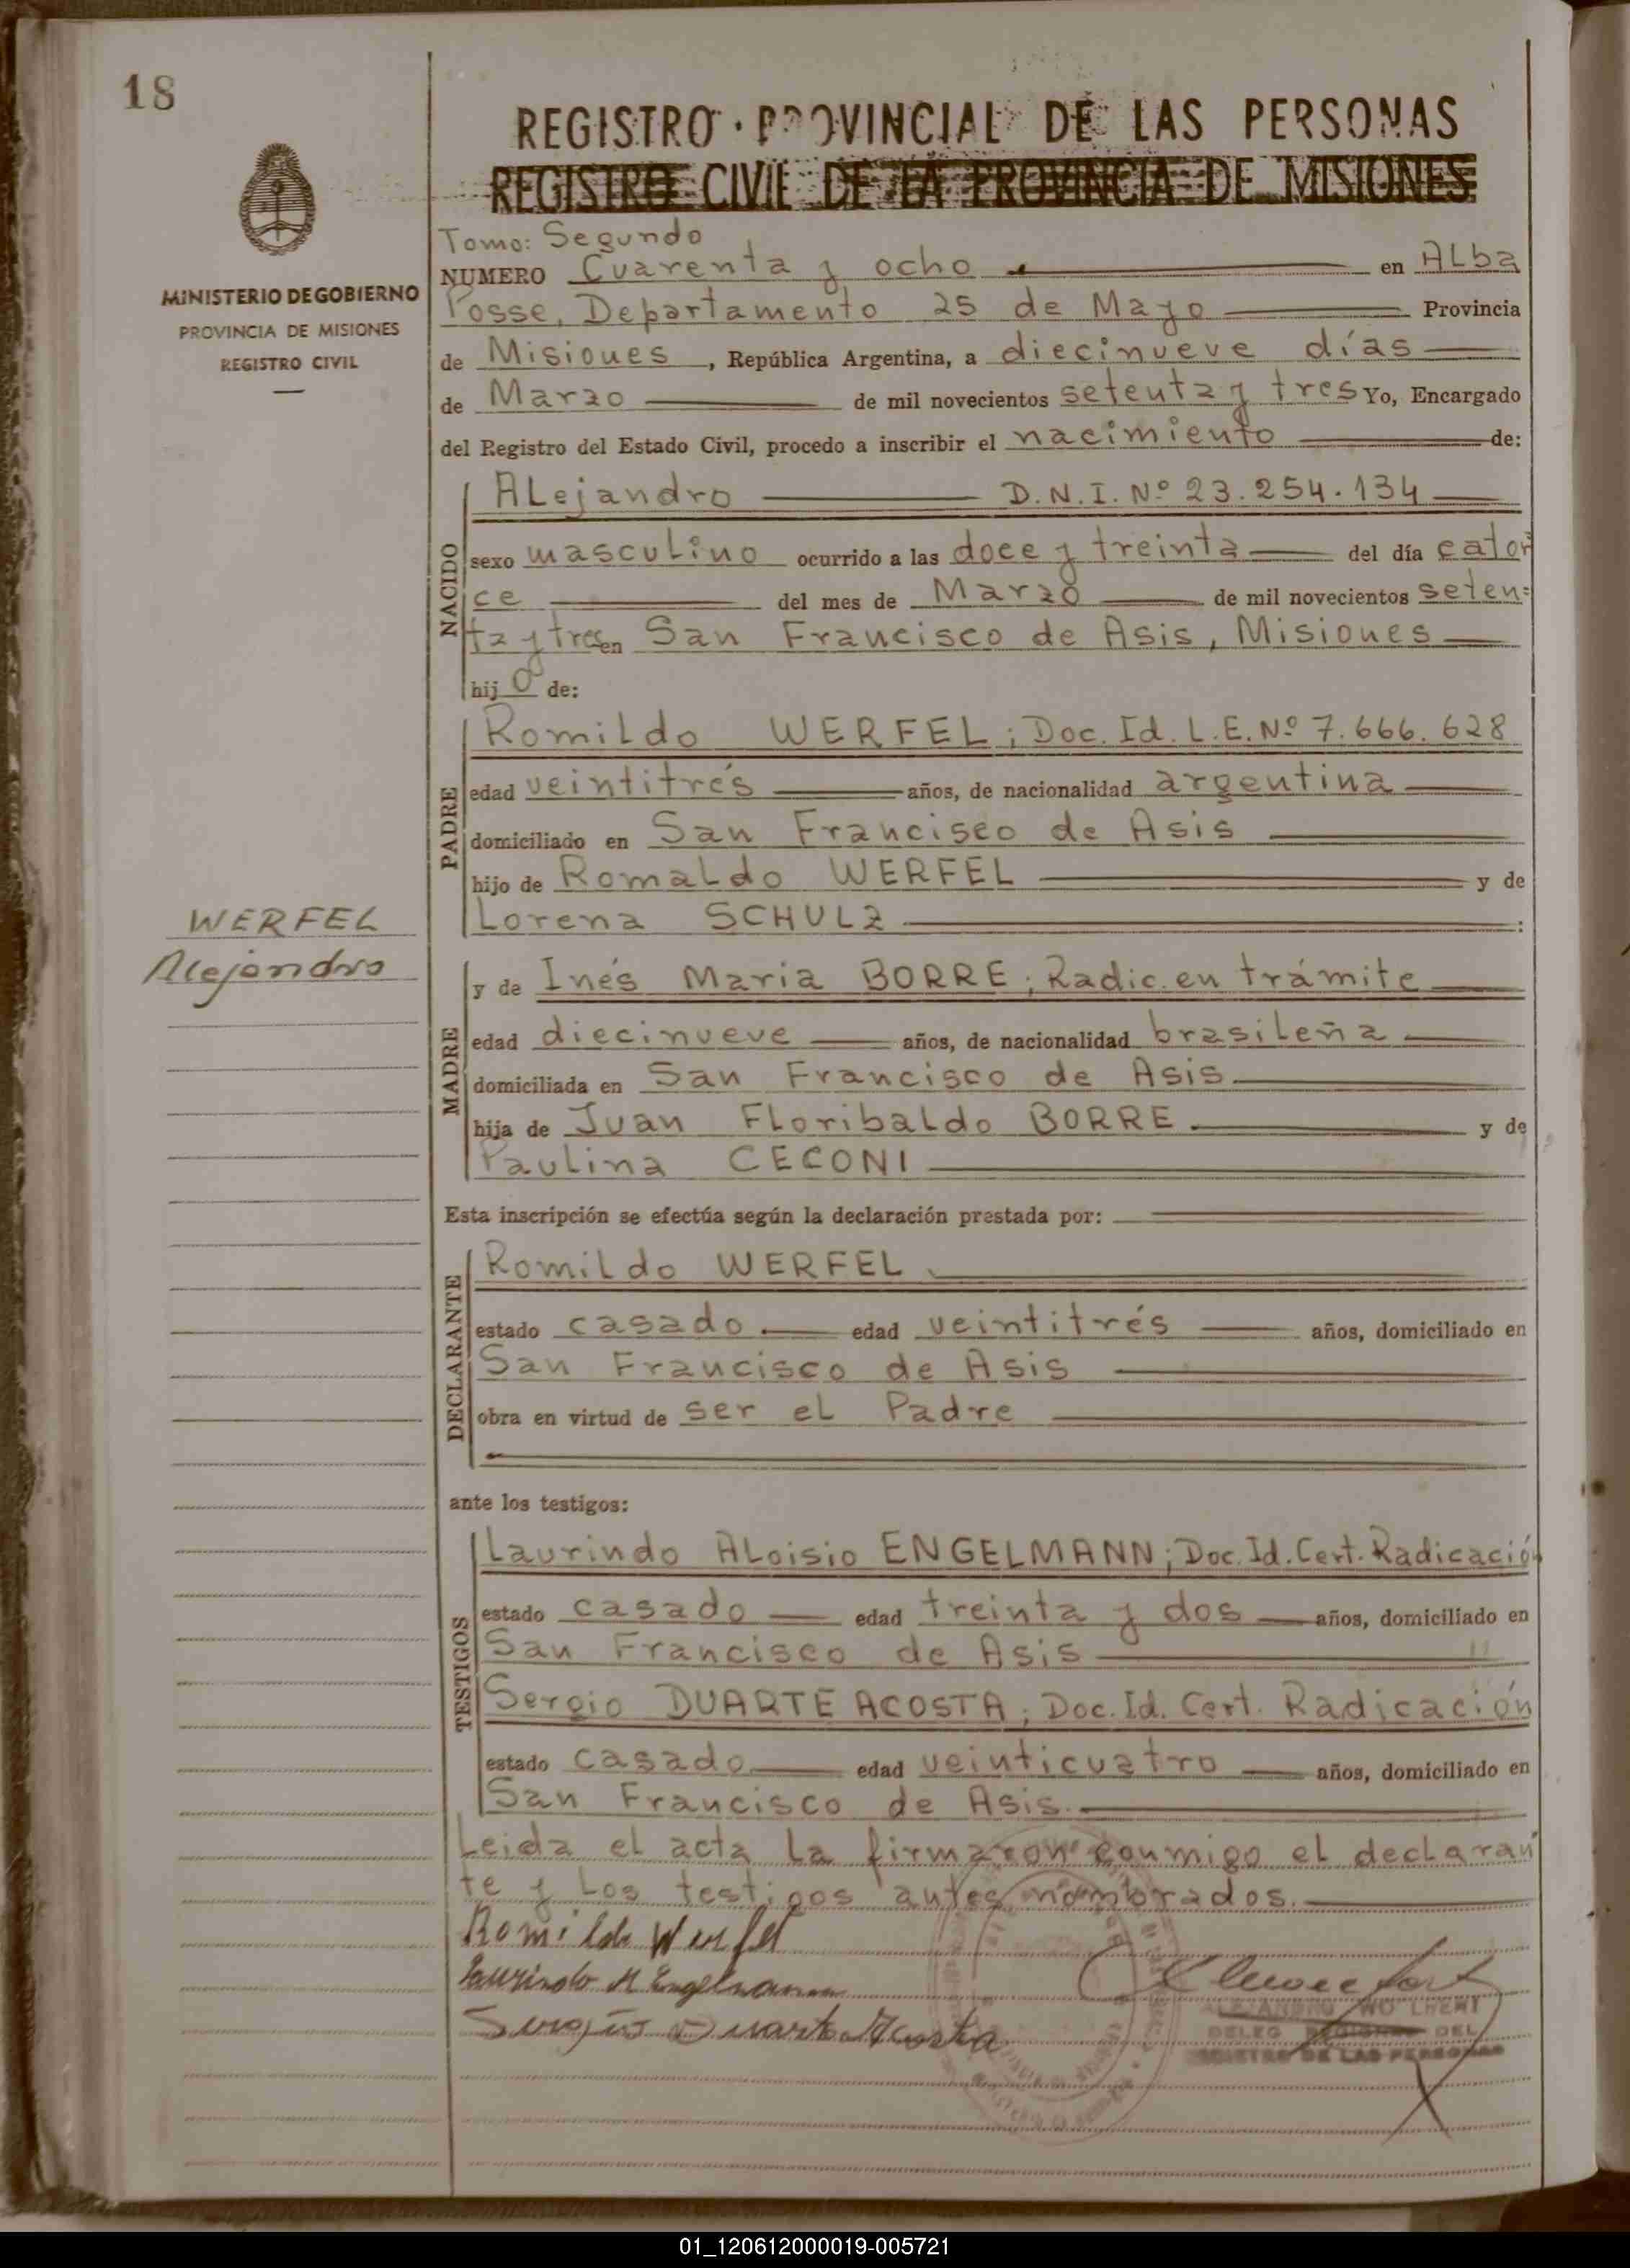 18
REGISTRO PROVINCIAL DE LAS PERSONAS
REGISTRO CIVIL DE LA PROVINCIA DE MISIONES
MINISTERIO DE GOBIERNO
PROVINCIA DE MISIONES
REGISTRO CIVIL
Tomo: Segundo
NUMERO Cuarenta y ocho en ALba
Posse, Departamento 25 de Mayo Provincia
de Misiones, República Argentina, a diecinueve días
de Marzo de mil novecientos setenta y tres Yo, Encargado
del Registro del Estado Civil, procedo a inscribir el nacimiento de:
NACIDO
ALejandro D.N.I. Nº 23.254.134
sexo masculino ocurrido a las doce y treinta del día cator
ce del mes de Marzo de mil novecientos seten=
ta y tres en San Francisco de Asis, Misiones
hijo de:
PADRE
Romildo WERFEL; Doc. Id. L.E. Nº 7.666.628
edad veintitrés años, de nacionalidad argentina
domiciliado en San Francisco de Asis
hijo de Romaldo WERFEL y de
Lorena SCHULZ :
WERFEL
Alejandro
MADRE
y de Inés Maria BORRE; Radic. en trámite
edad diecinueve años, de nacionalidad brasileña
domiciliada en San Francisco de Asis
hija de Juan Floribaldo BORRE y de
Paulina CECONI
Esta inscripción se efectúa según la declaración prestada por:
DECLARANTE
Romildo WERFEL
estado casado edad veintitrés años, domiciliado en
San Francisco de Asis
obra en virtud de ser el Padre
ante los testigos:
TESTIGOS
Laurindo ALoisio ENGELMANN; Doc. Id. Cert. Radicación
estado casado edad treinta y dos años, domiciliado en
San Francisco de Asis
Sergio DUARTE ACOSTA; Doc. Id. Cert. Radicación
estado casado edad veinticuatro años, domiciliado en
San Francisco de Asis.
Leida el acta la firmaron conmigo el declaran
te y los testigos antes nombrados.
Romildo Werfel
Laurindo A Engelmann
Sergio Duarte Acosta
ALEJANDRO
DELEG REGIONAL DEL
REGISTRO DE LAS PERSONAS
01_120612000019-005721